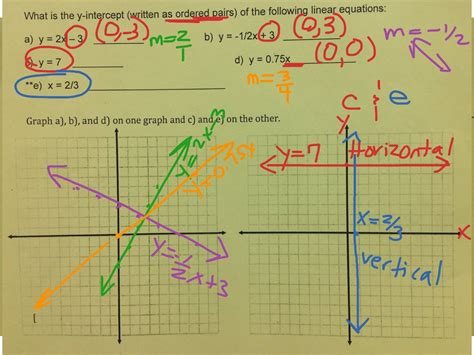 What is the y-intercept (written as ordered pairs) of the following linear equations:
a) y = 2x - 3 (0,-3) m=2/1 b) y = -1/2x + 3 (0,3) m=-1/2
y = 7 d) y = 0.75x (0,0)
**e) x = 2/3 m=3/4
c & e
Graph a), b), and d) on one graph and c) and e) on the other.
y=2x-3
y=0.75x
y=-1/2x+3
y
y=7 Horizontal
x
x=2/3
vertical